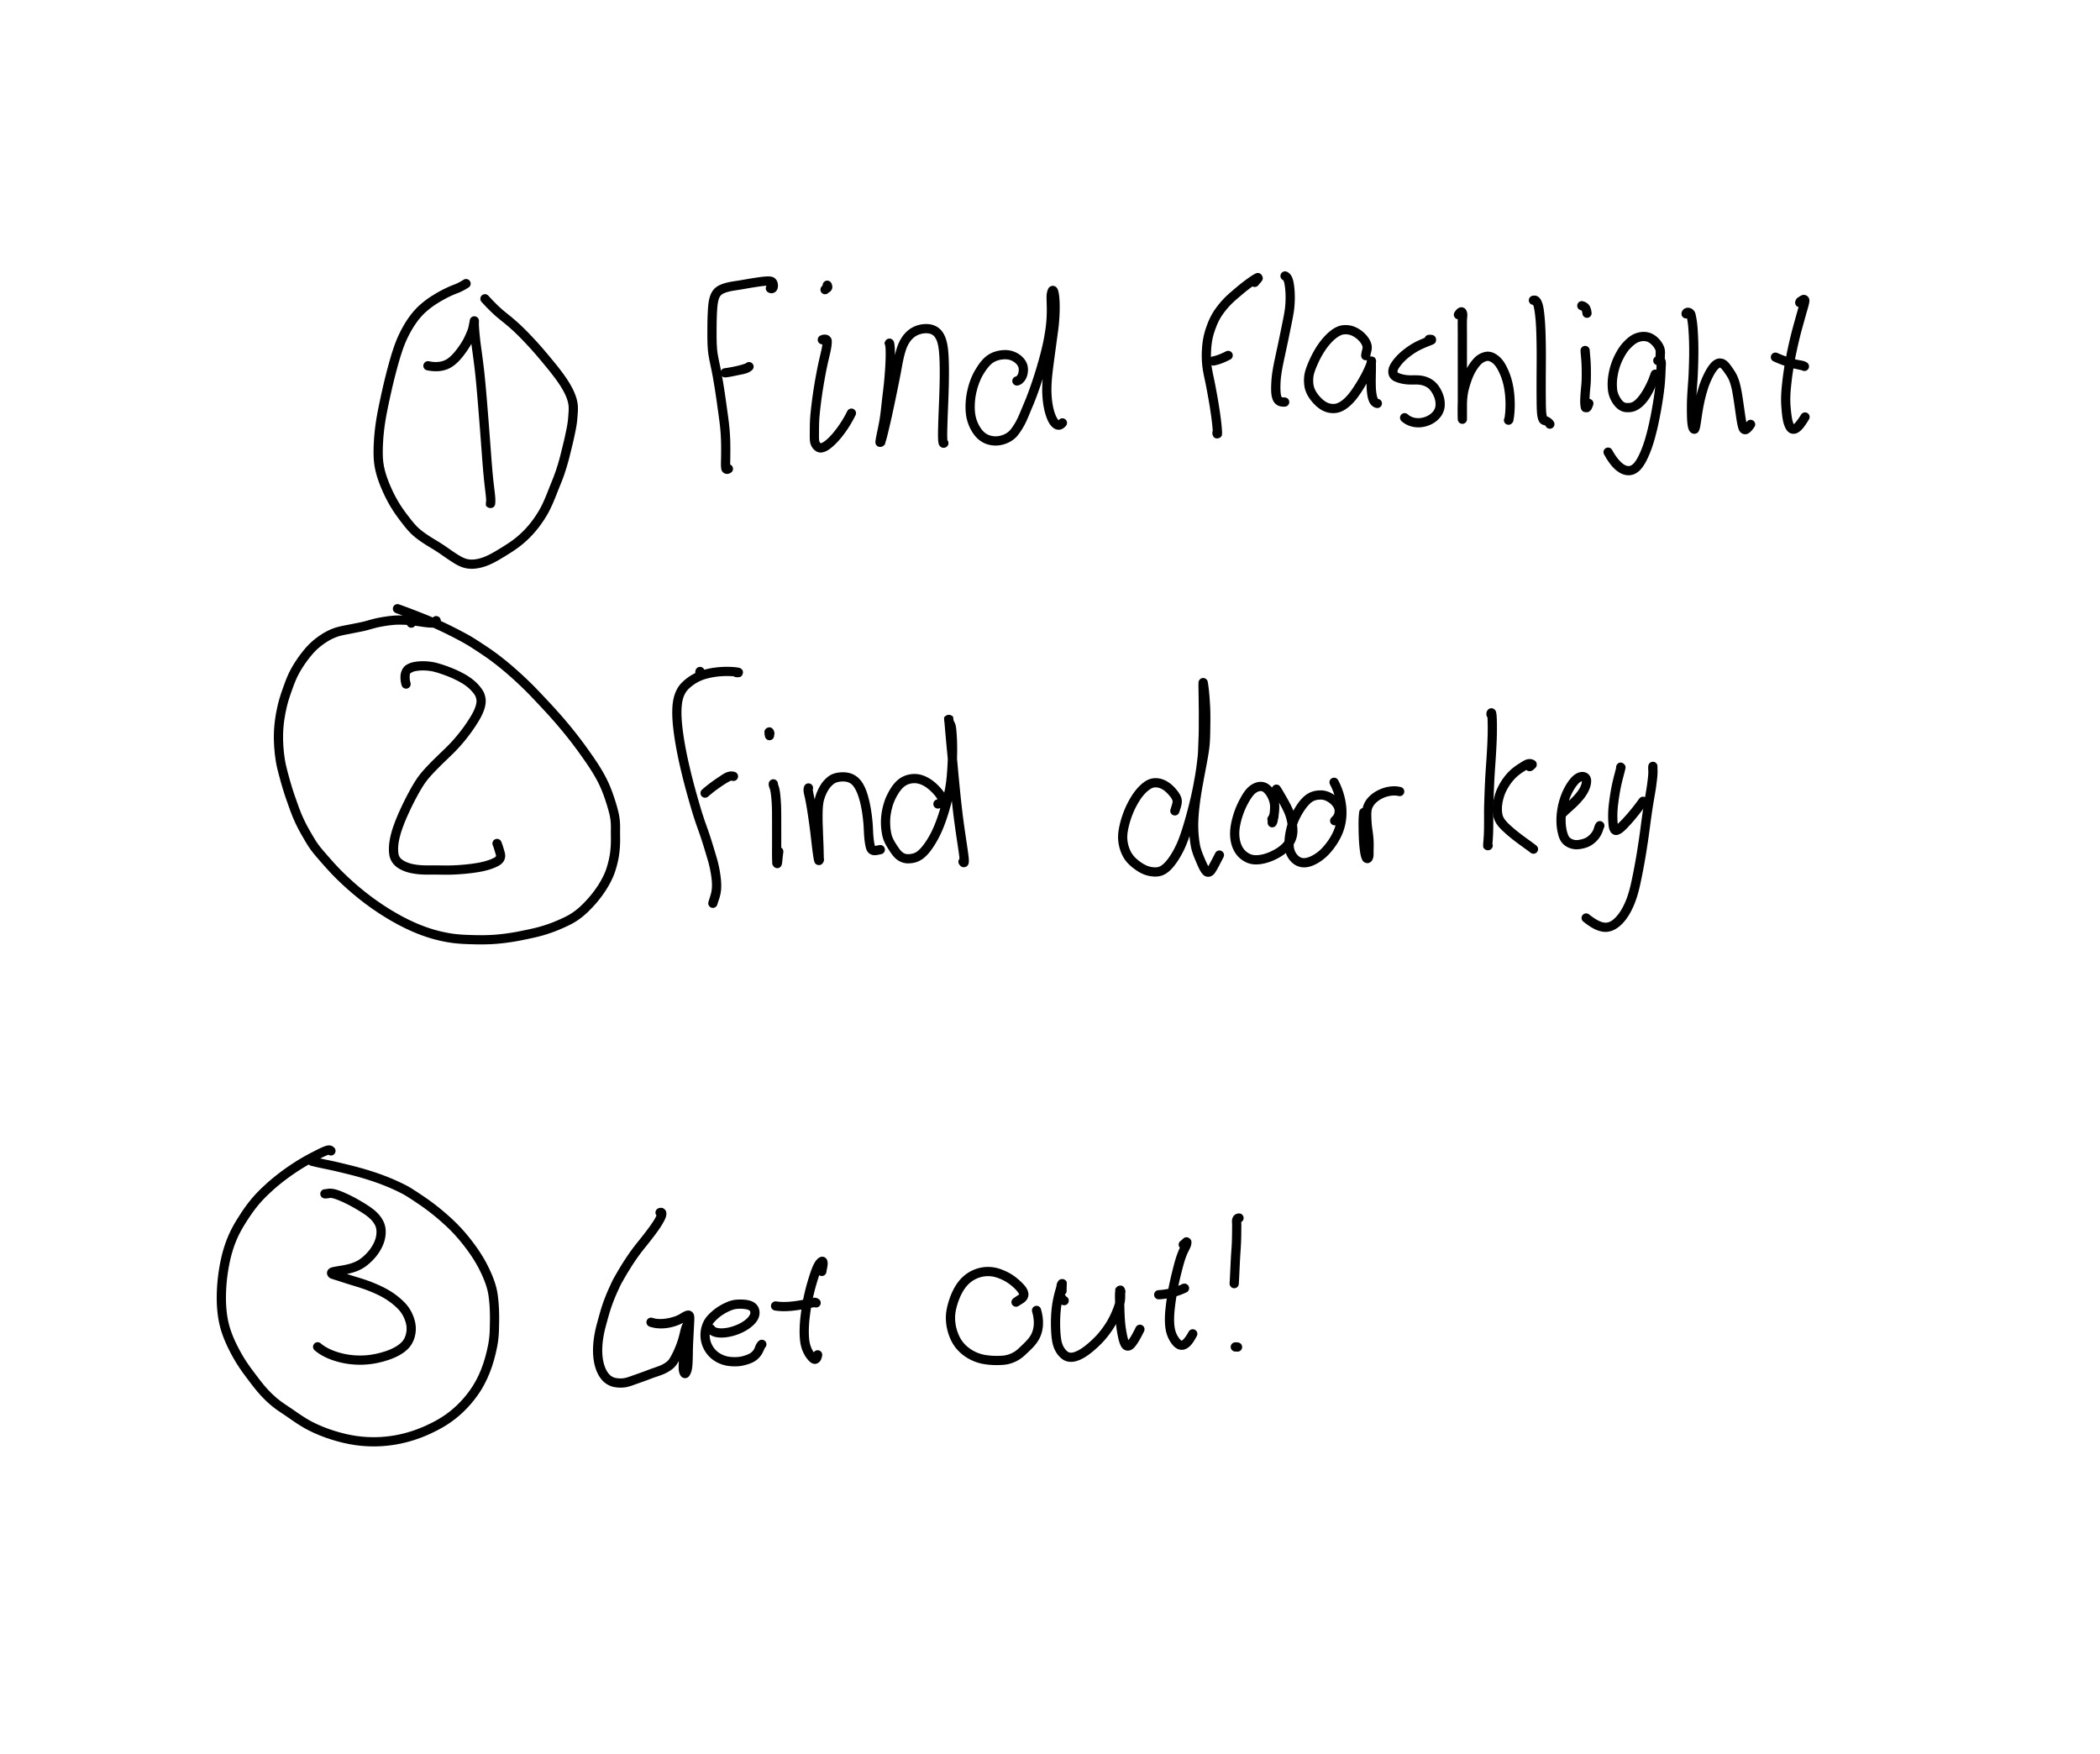 ① Find flashlight
② Find door key
③ Get out!